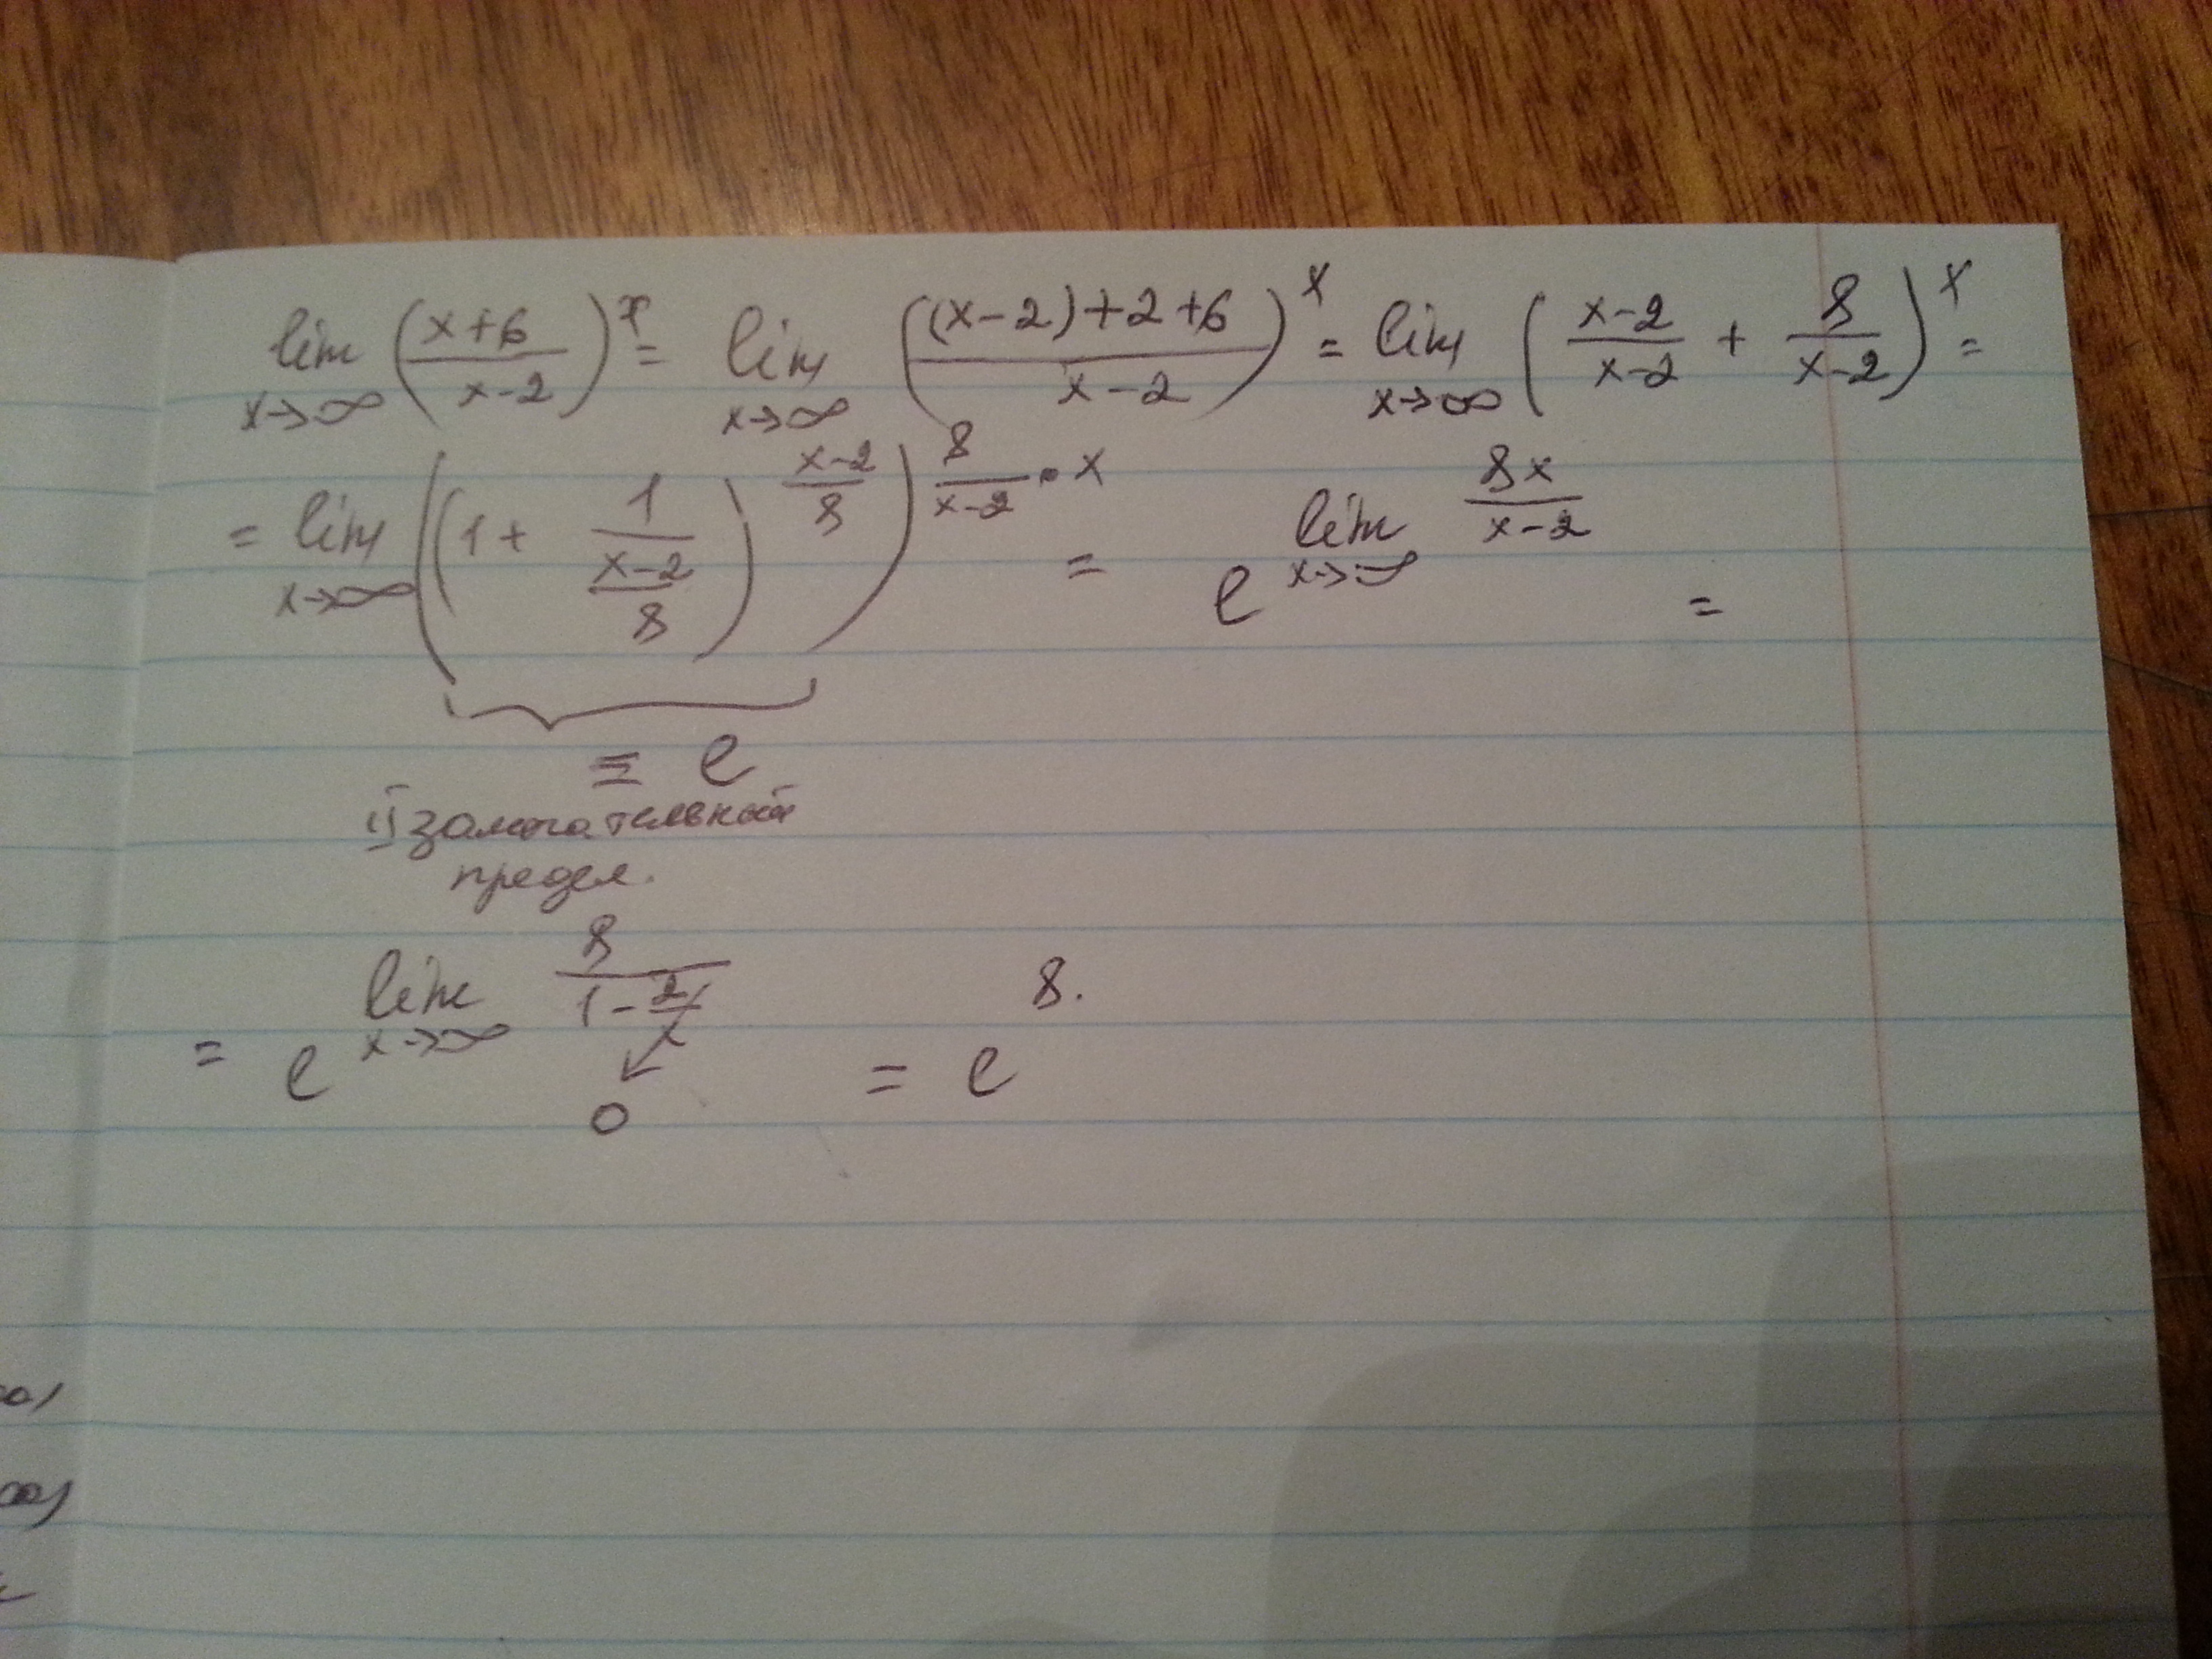 lim x→∞ ((x+6)/(x-2))^x = lim x→∞ (((x-2)+2+6)/(x-2))^x = lim x→∞ ((x-2)/(x-2) + 8/(x-2))^x =
= lim x→∞ ((1 + 1/((x-2)/8))^((x-2)/8))^(8/(x-2) · x) = e^(lim x→∞ 8x/(x-2)) =
= e
II замечательный
предел.
= e^(lim x→∞ 8/(1 - 2/x)) = e^8.
0